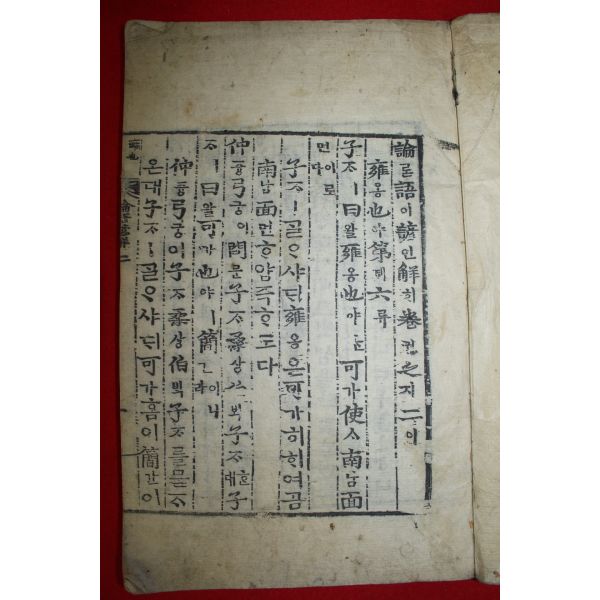 論론語어諺언解ᄒᆡ卷권之지二이
雍옹也야第뎨六륙
子ᄌᆞㅣ曰왈雍옹也야ᄂᆞᆫ可가使ᄉᆞ南남面
면이로다
子ᄌᆞㅣᄀᆞᆯᄋᆞ샤ᄃᆡ雍옹은可가히ᄒᆞ여곰
南남面면ᄒᆞ얌즉ᄒᆞ도다
仲듕弓궁이問문子ᄌᆞ桑상伯ᄇᆡᆨ子ᄌᆞᄒᆞᆫ대子
ᄌᆞㅣ曰왈可가也야ㅣ簡간이니라
仲듕弓궁이子ᄌᆞ桑상伯ᄇᆡᆨ子ᄌᆞ를묻ᄌᆞ
온대子ᄌᆞㅣᄀᆞᆯᄋᆞ샤ᄃᆡ可가홈이簡간이
論語諺解 二